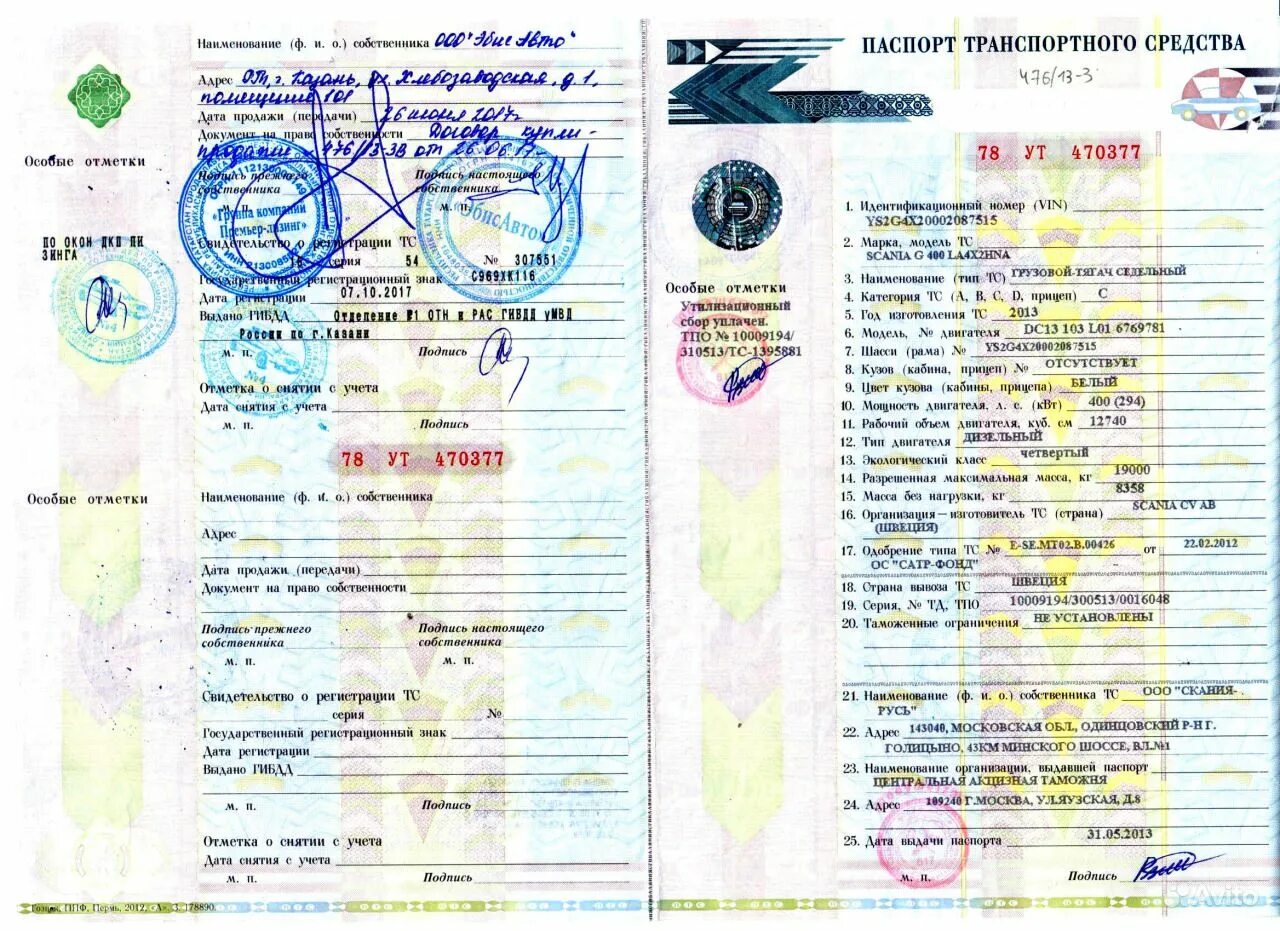 Наименование (ф. и. о.) собственника ООО "Эбис Авто"
Адрес ОТ, г. Казань, ул. Хлебозаводская, д. 1,
помещение 101
Дата продажи (передачи) 26 июня 2017г
Документ на право собственности Договор купли-
продажи 476/13-3В от 26.06.17г.
Особые отметки
Подпись прежнего собственника
Подпись настоящего собственника
М. П.
м. п.
«Группа компаний
Премьер-лизинг»
«ЭбисАвто»
ПО ОКОН ДКП ЛИ
ЗИНГА
Свидетельство о регистрации ТС
серия 54 № 307551
Государственный регистрационный знак С969ХК116
Дата регистрации 07.10.2017
Выдано ГИБДД Отделение №1 ОТН и РАС ГИБДД УМВД
России по г.Казани
м. п. Подпись
№4
Отметка о снятии с учета
Дата снятия с учета
м. п. Подпись
78 УТ 470377
Особые отметки
Наименование (ф. и. о.) собственника
Адрес
Дата продажи (передачи)
Документ на право собственности
Подпись прежнего собственника
Подпись настоящего собственника
м. п.
м. п.
Свидетельство о регистрации ТС
серия №
Государственный регистрационный знак
Дата регистрации
Выдано ГИБДД
м. п. Подпись
Отметка о снятии с учета
Дата снятия с учета
м. п. Подпись
Гознак, ППФ, Пермь, 2012, «А». З. 178890.
ПАСПОРТ ТРАНСПОРТНОГО СРЕДСТВА
476/13-3
78 УТ 470377
Особые отметки
Утилизационный
сбор уплачен.
ТПО № 10009194/
310513/ТС-1395881
1. Идентификационный номер (VIN)
YS2G4X20002087515
2. Марка, модель ТС
SCANIA G 400 LA4X2HNA
3. Наименование (тип ТС) ГРУЗОВОЙ-ТЯГАЧ СЕДЕЛЬНЫЙ
4. Категория ТС (A, B, C, D, прицеп) C
5. Год изготовления ТС 2013
6. Модель, № двигателя DC13 103 L01 6769781
7. Шасси (рама) № YS2G4X20002087515
8. Кузов (кабина, прицеп) № ОТСУТСТВУЕТ
9. Цвет кузова (кабины, прицепа) БЕЛЫЙ
10. Мощность двигателя, л. с. (кВт) 400 (294)
11. Рабочий объем двигателя, куб. см 12740
12. Тип двигателя ДИЗЕЛЬНЫЙ
13. Экологический класс четвертый
14. Разрешенная максимальная масса, кг 19000
15. Масса без нагрузки, кг 8358
16. Организация—изготовитель ТС (страна) SCANIA CV AB
(ШВЕЦИЯ)
17. Одобрение типа ТС № E-SE.MT02.B.00426 от 22.02.2012
ОС "САТР-ФОНД"
18. Страна вывоза ТС ШВЕЦИЯ
19. Серия, № ТД, ТПО 10009194/300513/0016048
20. Таможенные ограничения НЕ УСТАНОВЛЕНЫ
21. Наименование (ф. и. о.) собственника ТС ООО "СКАНИЯ-
РУСЬ"
22. Адрес 143040, МОСКОВСКАЯ ОБЛ., ОДИНЦОВСКИЙ Р-Н Г.
ГОЛИЦЫНО, 43КМ МИНСКОГО ШОССЕ, ВЛ.№1
23. Наименование организации, выдавшей паспорт
ЦЕНТРАЛЬНАЯ АКЦИЗНАЯ ТАМОЖНЯ
24. Адрес 109240 Г.МОСКВА, УЛ.ЯУЗСКАЯ, Д.8
25. Дата выдачи паспорта 31.05.2013
М. П. Подпись
Avito